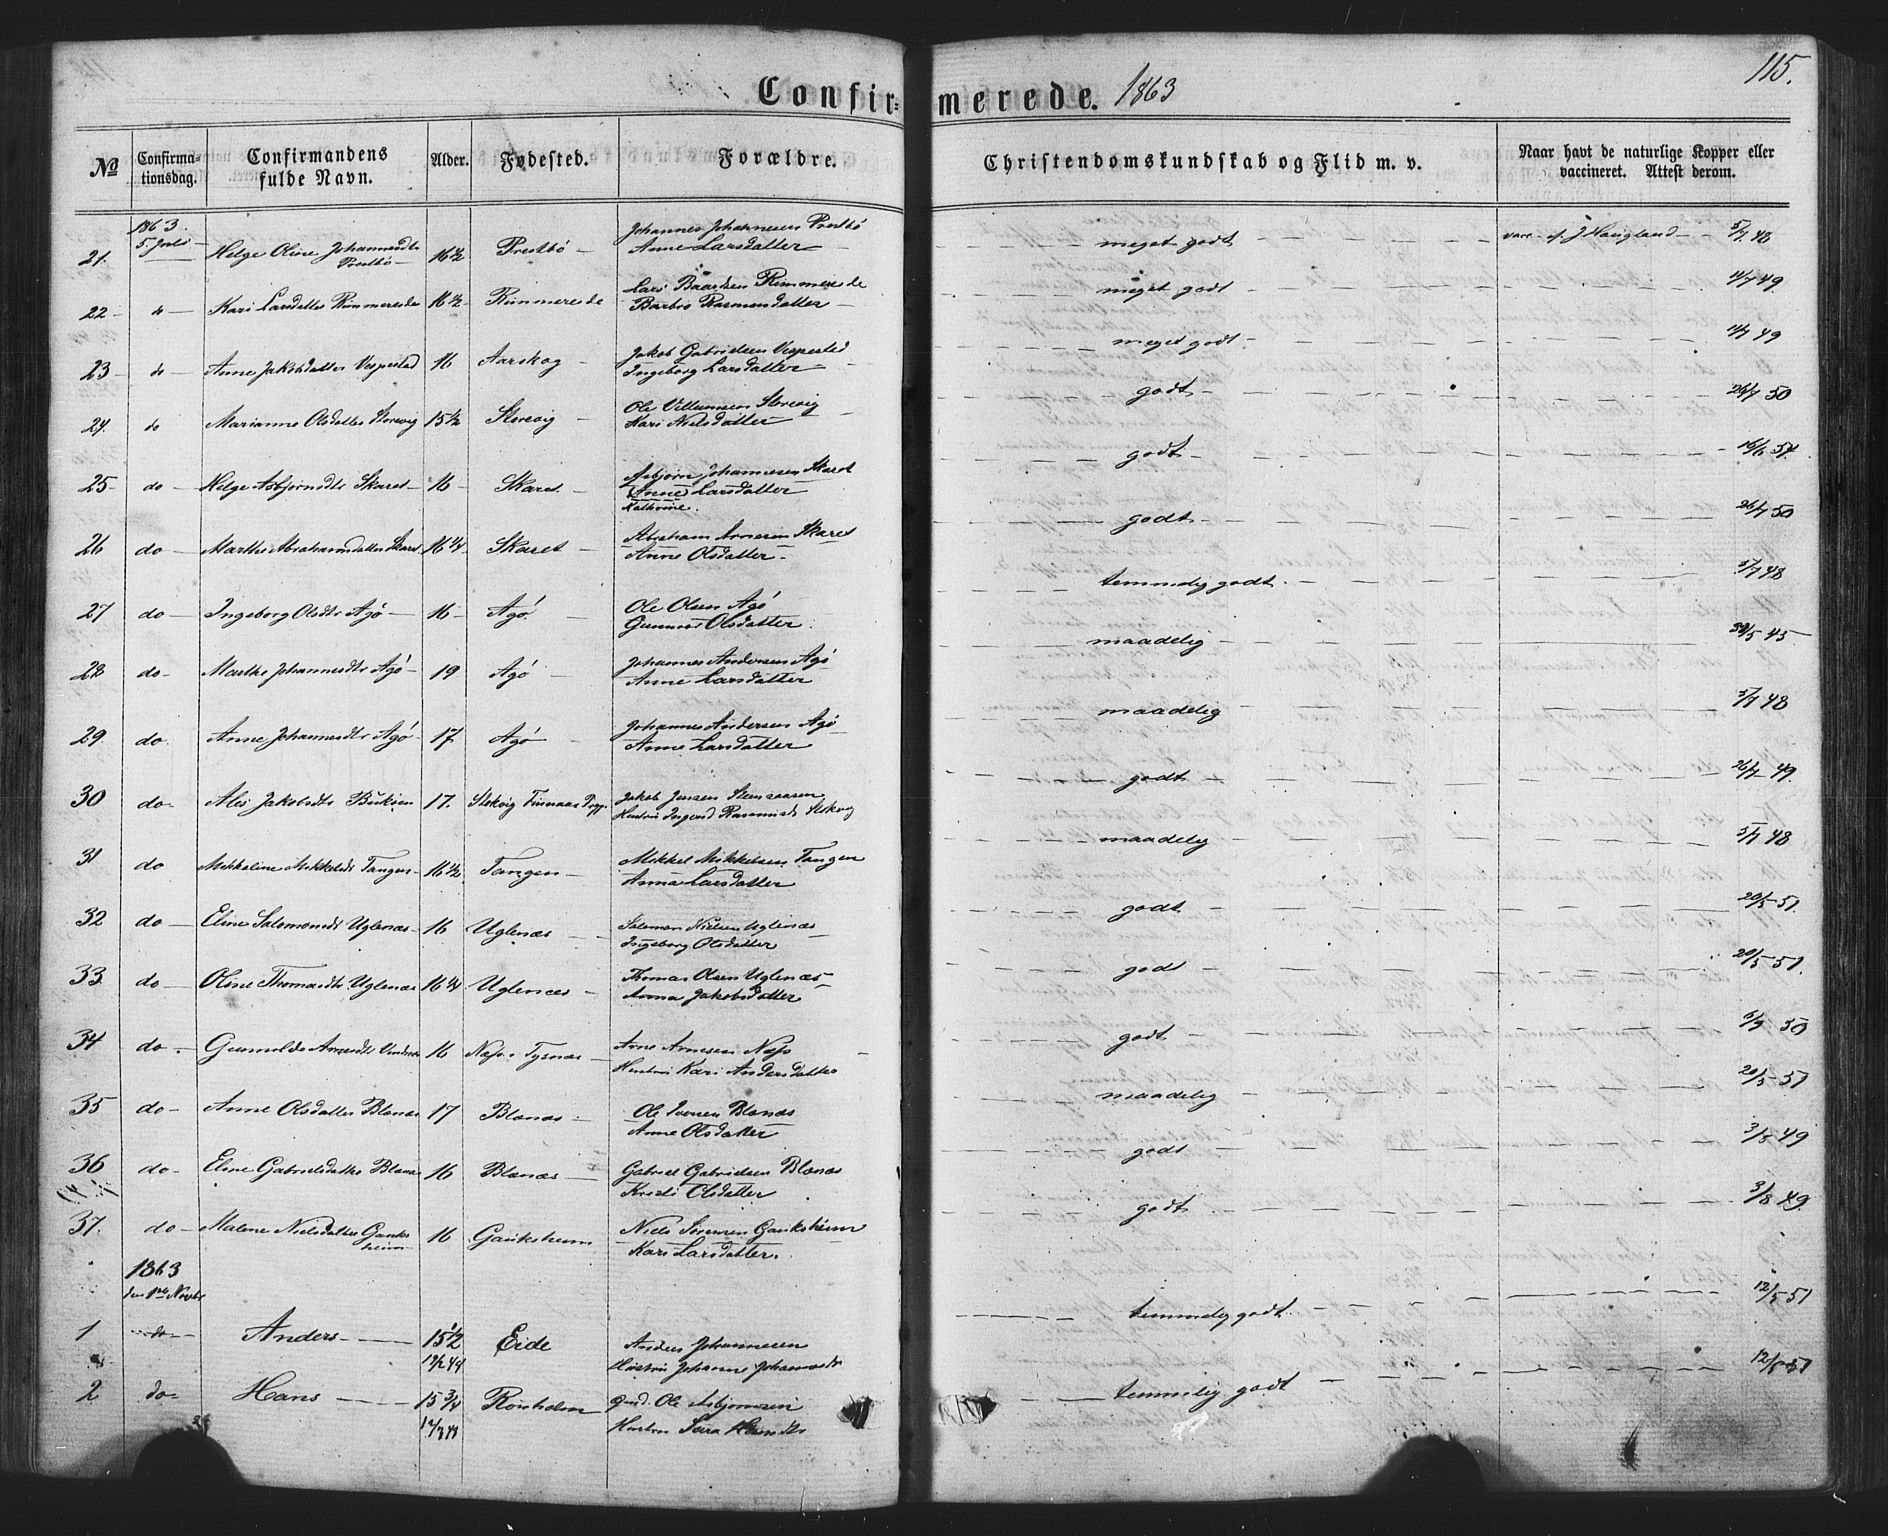 115.
Confir= merede. 1863
No Confirma=tionsdag. Confirmandens fulde Navn. Alder. Fødested. Forældre. Christendomskundskab og Flid m. v. Naar havt de naturlige Kopper eller vaccineret. Attest derom.
1863.
21. 5 Helge Oline Johannesdtr Prestbö 16½ Prestbö Johannes Johannesen Prestbö meget godt vacc. af J Haugland 5/7 48
Anne Larsdatter
22 do Kari Larsdatter Rimmereide 16½ Rimmereide Lars Baardsen Rimmereide meget godt 11/7 49
Barbro Rasmusdatter
23 do Anne Jakobsdatter Vespestad 16 Aarskog Jakob Gabrielsen Vespested meget godt 11/7 49
Ingeborg Larsdatter
24. do Marianne Olsdatter Storevig 15½ Storevig Ole Villumsen Storevig godt 26/7 50
Kari Nielsdatter
25 do Helge Asbjörnsdtr Skaret 16 Skaret Asbjörn Johannesen Skaret godt
(Anne) Larsdatter
Kathrine.
26 do Marthe Abrahamsdatter Skaret 16¼ Skaret Abraham Arnesen Skaret godt 26/7 50
Anne Olsdatter
27 do Ingeborg Olsdtr Agö 16 Agö Ole Olsen Agö temmelig godt 5/7 48
Olsdatter
28 do Marthe Johannesdtr Agö 19 Agö Johannes Andersen Agö maadelig
Anne Larsdatter
29. do Anne Johannesdtr Agö 17 Agö Johannes Andersen Agö maadelig 5/7 48
Anne Larsdatter
30 do Jakobsdtr 17. Jakob Jensen godt 26/7 49
31 do Mikkeline Mikkelsdtr Tangen 16½ Tangen Mikkel Mikkelsen Tangen maadelig 5/7 48
Anna Larsdatter
32 do Eline Salomonsdtr Uglenæs 16 Uglenæs Salomon Nielsen Uglenæs godt 20/5 51.
Ingeborg Olsdatter
33. do Oline Thomasdtr Uglenæs 16¼ Uglenæs Thomas Olsen Uglenæs godt 20/5 51.
Anna Jakobsdatter
34 do. Gunnilde 16 Tysnæs Arne Arnesen godt 50
Hustru Kari Andersdatter
35 do Anne Olsdatter Blænæs 17 Blænæs Ole Iversen Blænæs maadelig 20/5 51
Anne Olsdatter
36 do Eline Gabrielsdatter Blænæs 16 Blænæs Gabriel Gabrielsen Blænæs godt 3/8 49
Kristi Olsdatter
37. do Malene Nielsdatter Gauksheim 16 Gauksheim Niels Sörensen Gauksheim godt 3/8 49.
Kari Larsdatter.
1863
den 1ste Novbr
1 do Anders 15½ Eide Anders Johannesen temmelig godt 12/5 51
Hustru Johanne Johannesdtr
2 do Hans 15¾ Ole Asbjörnsen temmelig godt 12/5 51
Hustru